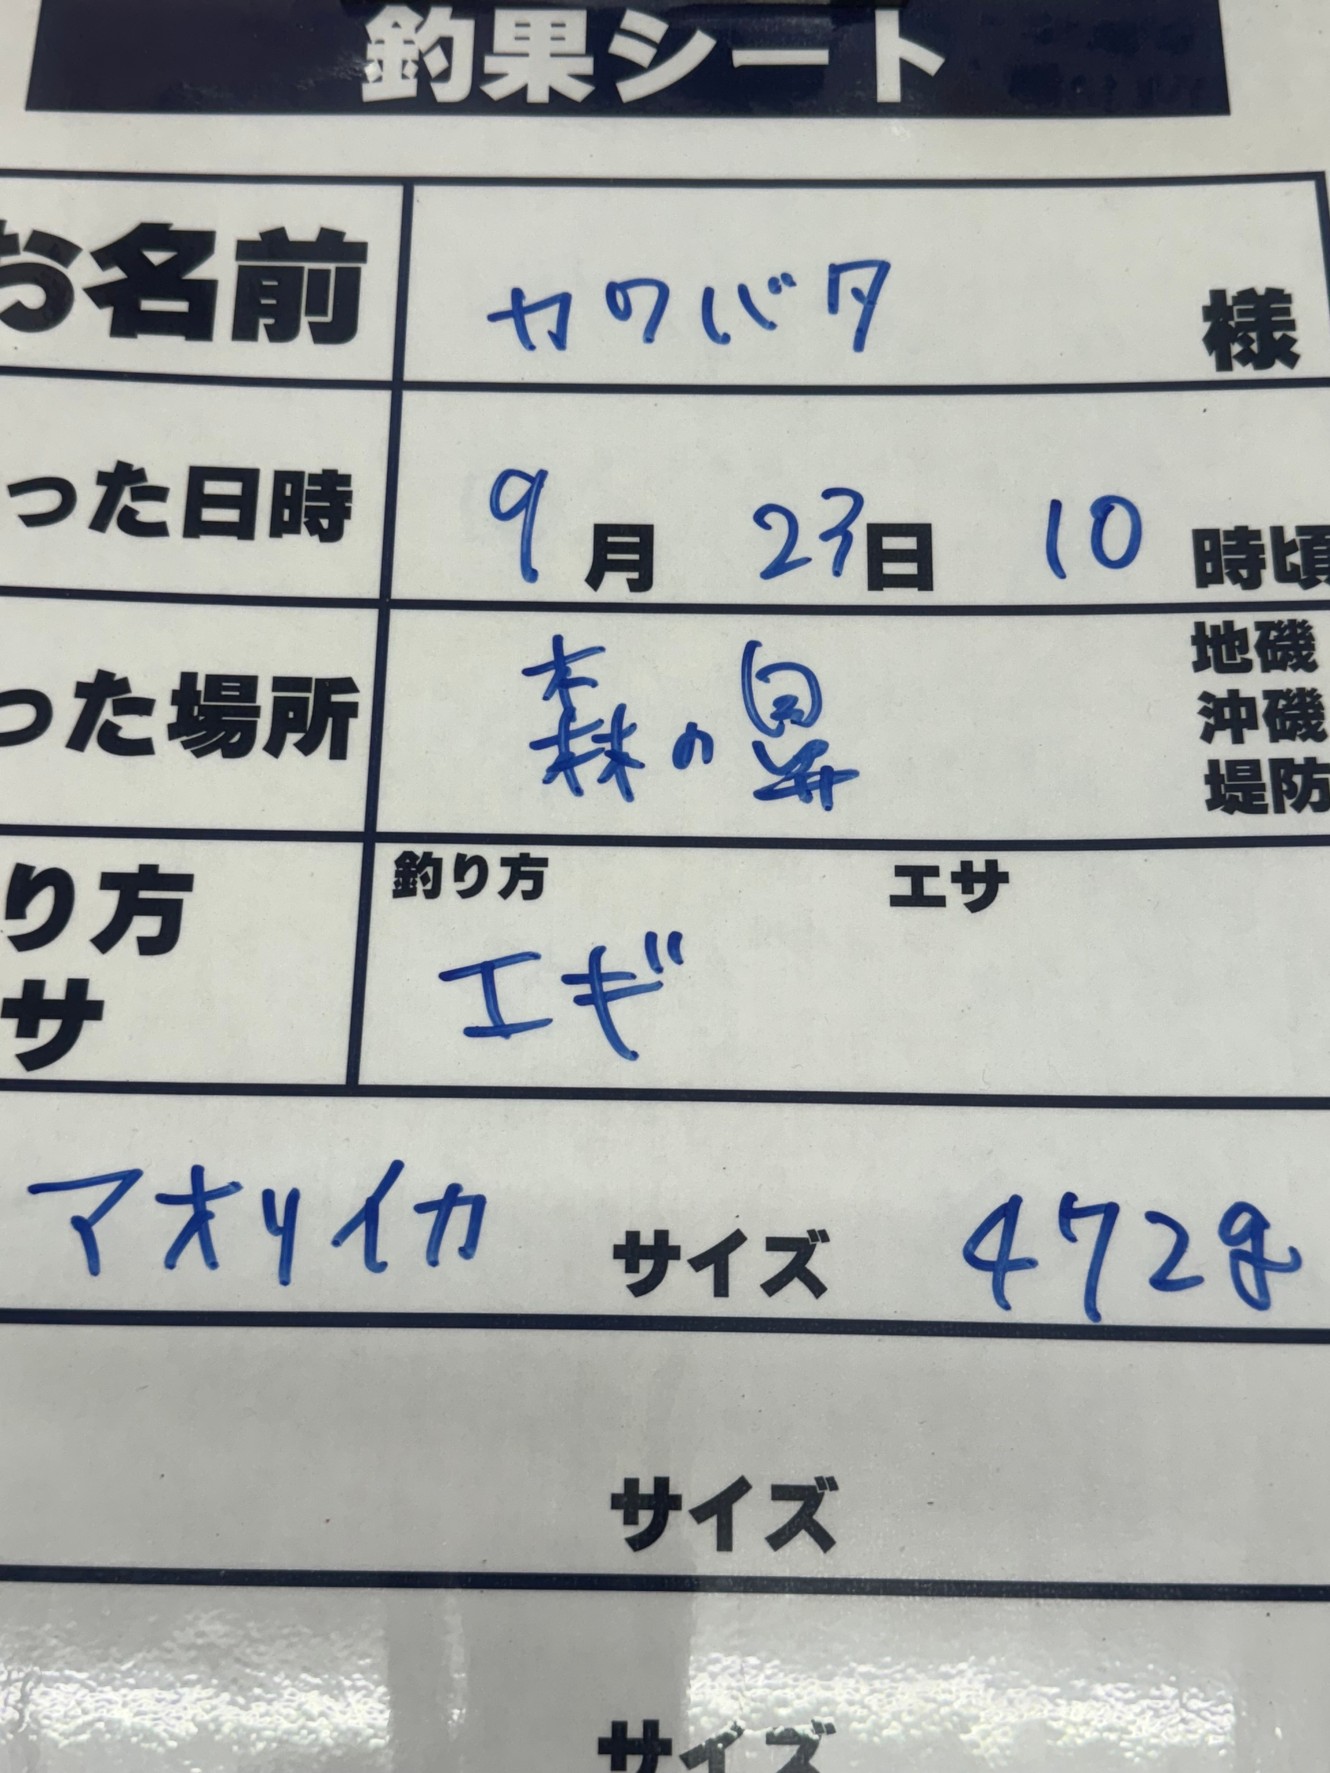 釣果シート
お名前 カワバタ 様
った日時 9月 23日 10時頃
った場所 森の鼻 地磯
沖磯
堤防
り方 釣り方 エサ
サ エギ
アオリイカ サイズ 472g
サイズ
サイズ